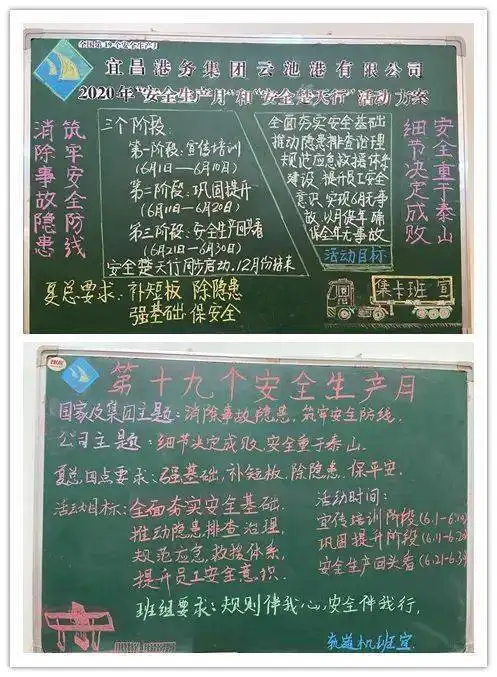 全国第19个安全生产月
宜昌港务集团云池港有限公司
2020年"安全生产月"和"安全楚天行"活动方案
筑牢安全防线
消除事故隐患
三个阶段:
第一阶段:宣传培训
(6月1日—6月10日)
第二阶段:巩固提升
(6月11日—6月20日)
第三阶段:安全生产回头看
(6月21日—6月30日)
安全楚天行同步启动,12月份结束
夏总要求:补短板 除隐患
强基础 保安全
全面夯实安全基础
推动隐患排查治理
规范应急救援体系
建设 提升员工安全
意识 实现6月无事
故,以月保年 确
保全年无事故
活动目标
安全重于泰山
细节决定成败
集卡班 宣
第十九个安全生产月
国家及集团主题:消除事故隐患,筑牢安全防线.
公司主题:细节决定成败,安全重于泰山.
夏总四点要求:强基础,补短板,除隐患,保平安.
活动目标:全面夯实安全基础.
推动隐患排查治理,
规范应急,救援体系,
提升员工安全意识.
活动时间:
宣传培训阶段(6.1-6.10
巩固提升阶段(6.11-6.20
安全生产回头看(6.21-6.3
班组要求:规则伴我心,安全伴我行.
轨道机班宣